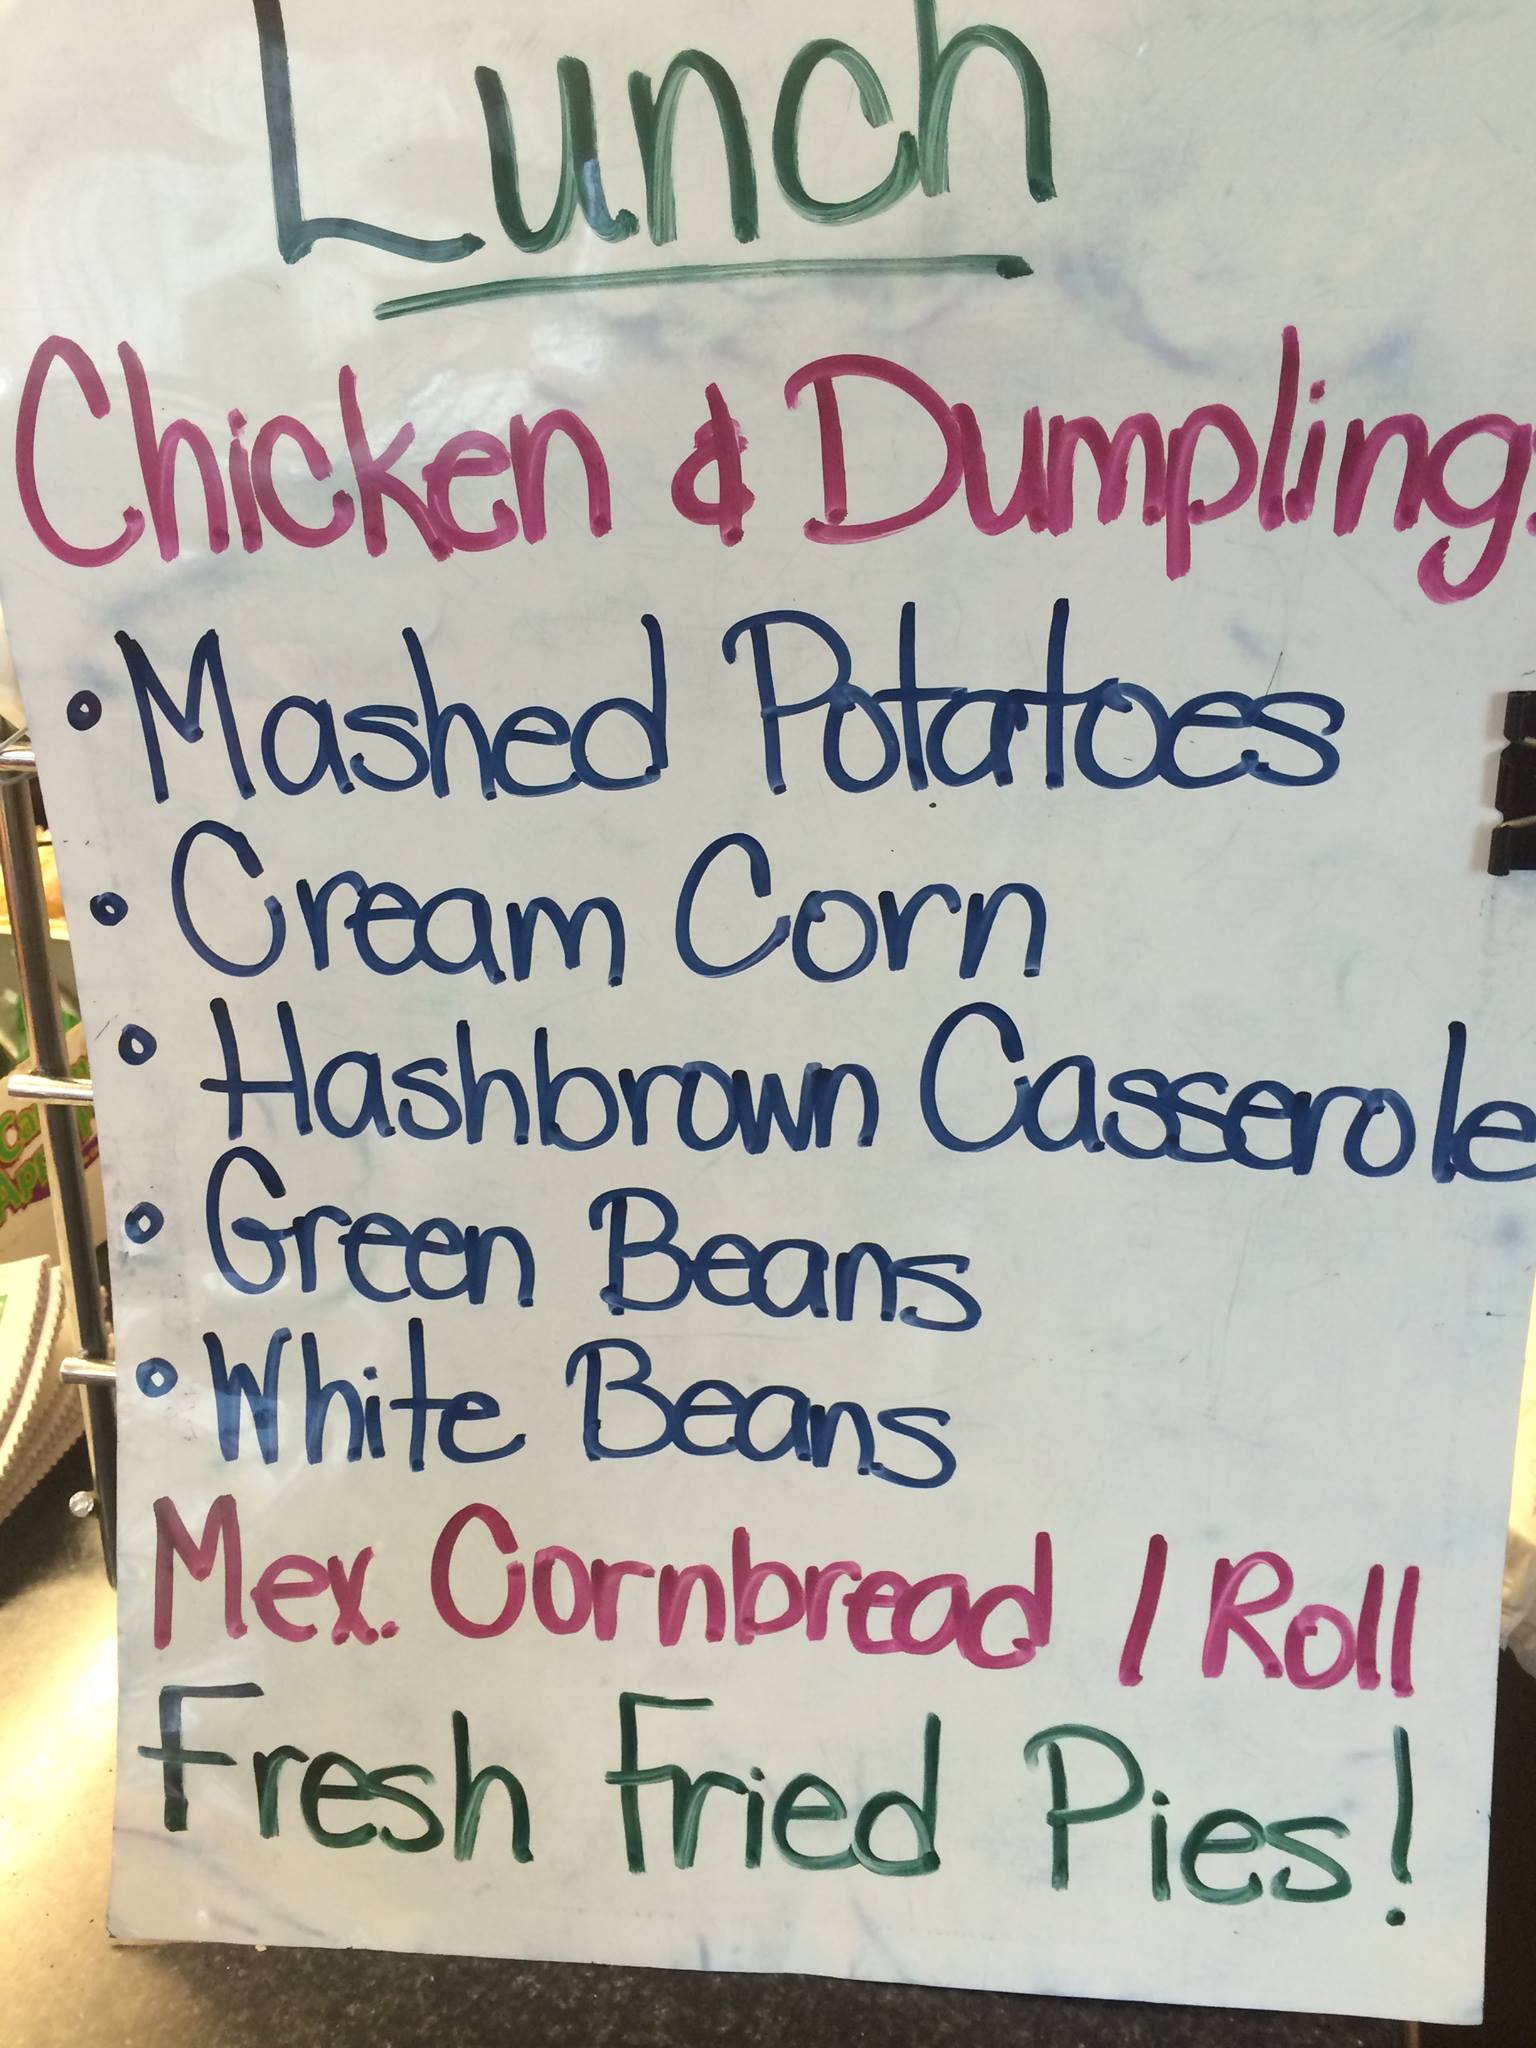 Lunch
Chicken & Dumplings
• Mashed Potatoes
• Cream Corn
• Hashbrown Casserole
• Green Beans
• White Beans
Mex. Cornbread / Roll
Fresh Fried Pies!